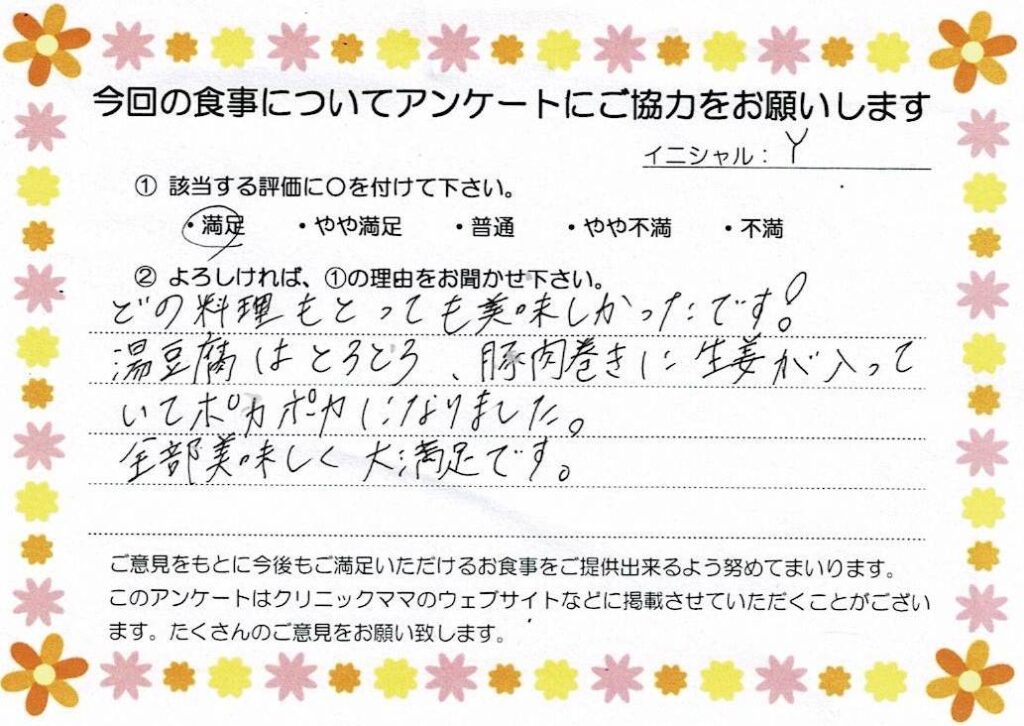 今回の食事についてアンケートにご協力をお願いします
イニシャル： Y
① 該当する評価に〇を付けて下さい。
・満足 ・やや満足 ・普通 ・やや不満 ・不満
② よろしければ、①の理由をお聞かせ下さい。
どの料理もとっても美味しかったです!
湯豆腐はとろとろ、豚肉巻きに生姜が入って
いてポカポカになりました。
全部美味しく大満足です。
ご意見をもとに今後もご満足いただけるお食事をご提供出来るよう努めてまいります。
このアンケートはクリニックママのウェブサイトなどに掲載させていただくことがござい
ます。たくさんのご意見をお願い致します。